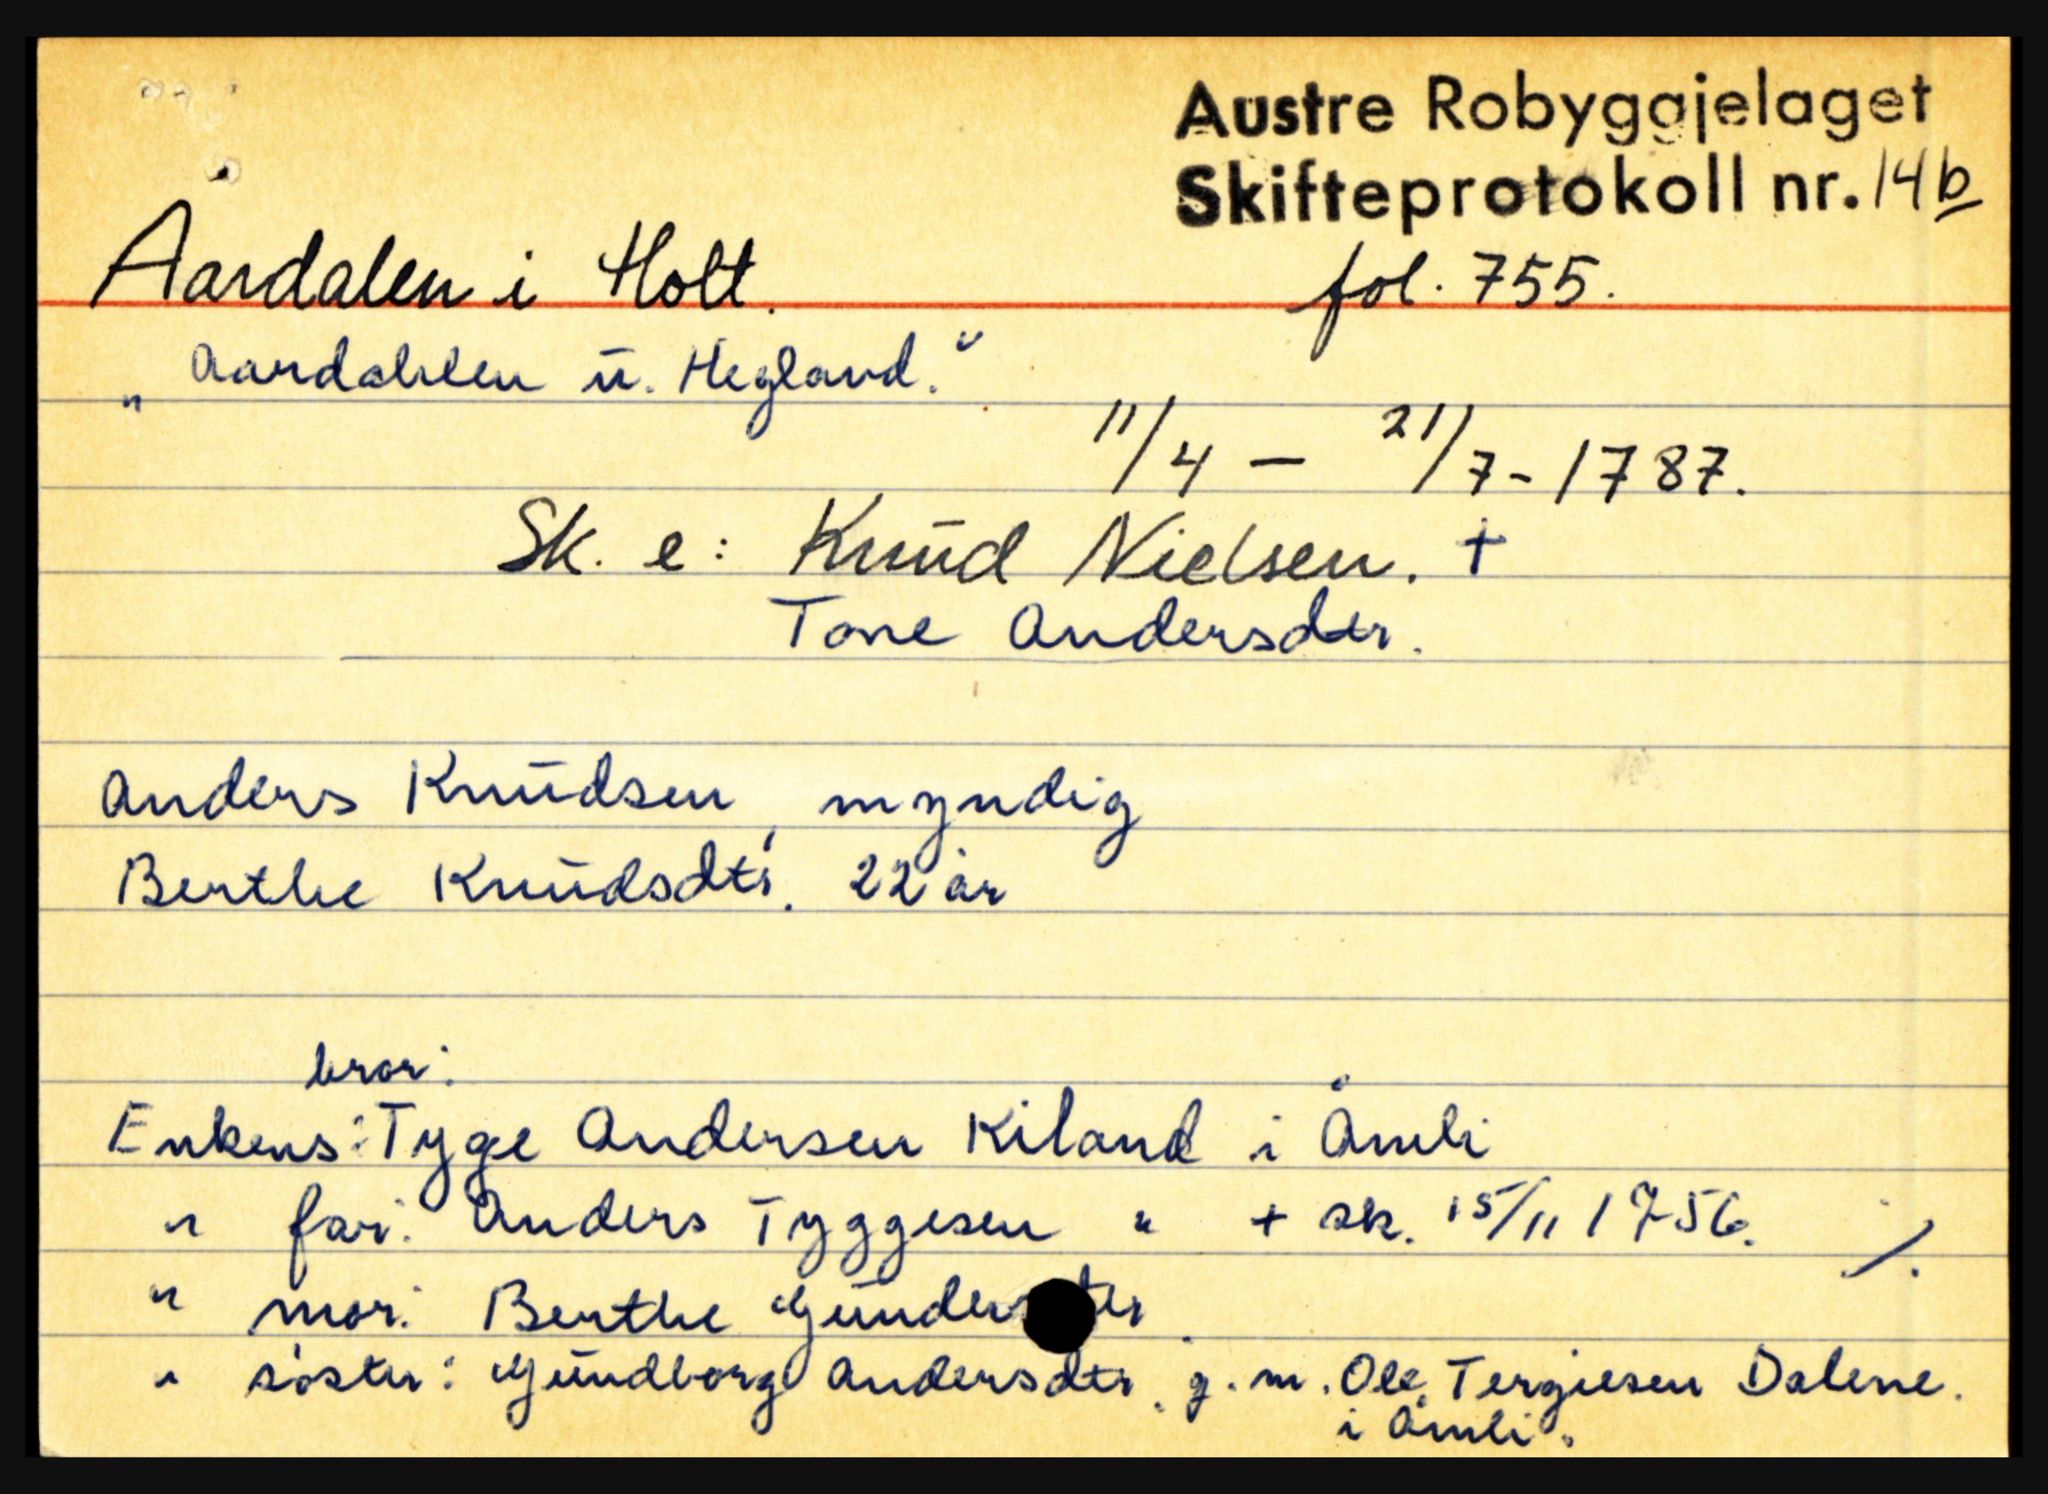 Austre Robyggjelaget
Skifteprotokoll nr. 14b
Åardalen i Holt.
fol. 755.
„ Aardahlen ū. Hegland."
11/4 — 21/7 - 1787.
Sk. e: Knūd Nielsen. +
Tone Andersdtr.
Anders Knūdsen, myndig
Berthe Knūdsdtr. 22 år
bror:
Enkens: Tyge Andersen Kiland i Åmli
" far: Anders Tyggesen " + sk. 15/11 1756. ./.
" mor: Berthe
" søster: Gūndborg Andersdtr. g. m. Ole Tergiesen Dalene.
i Åmli.